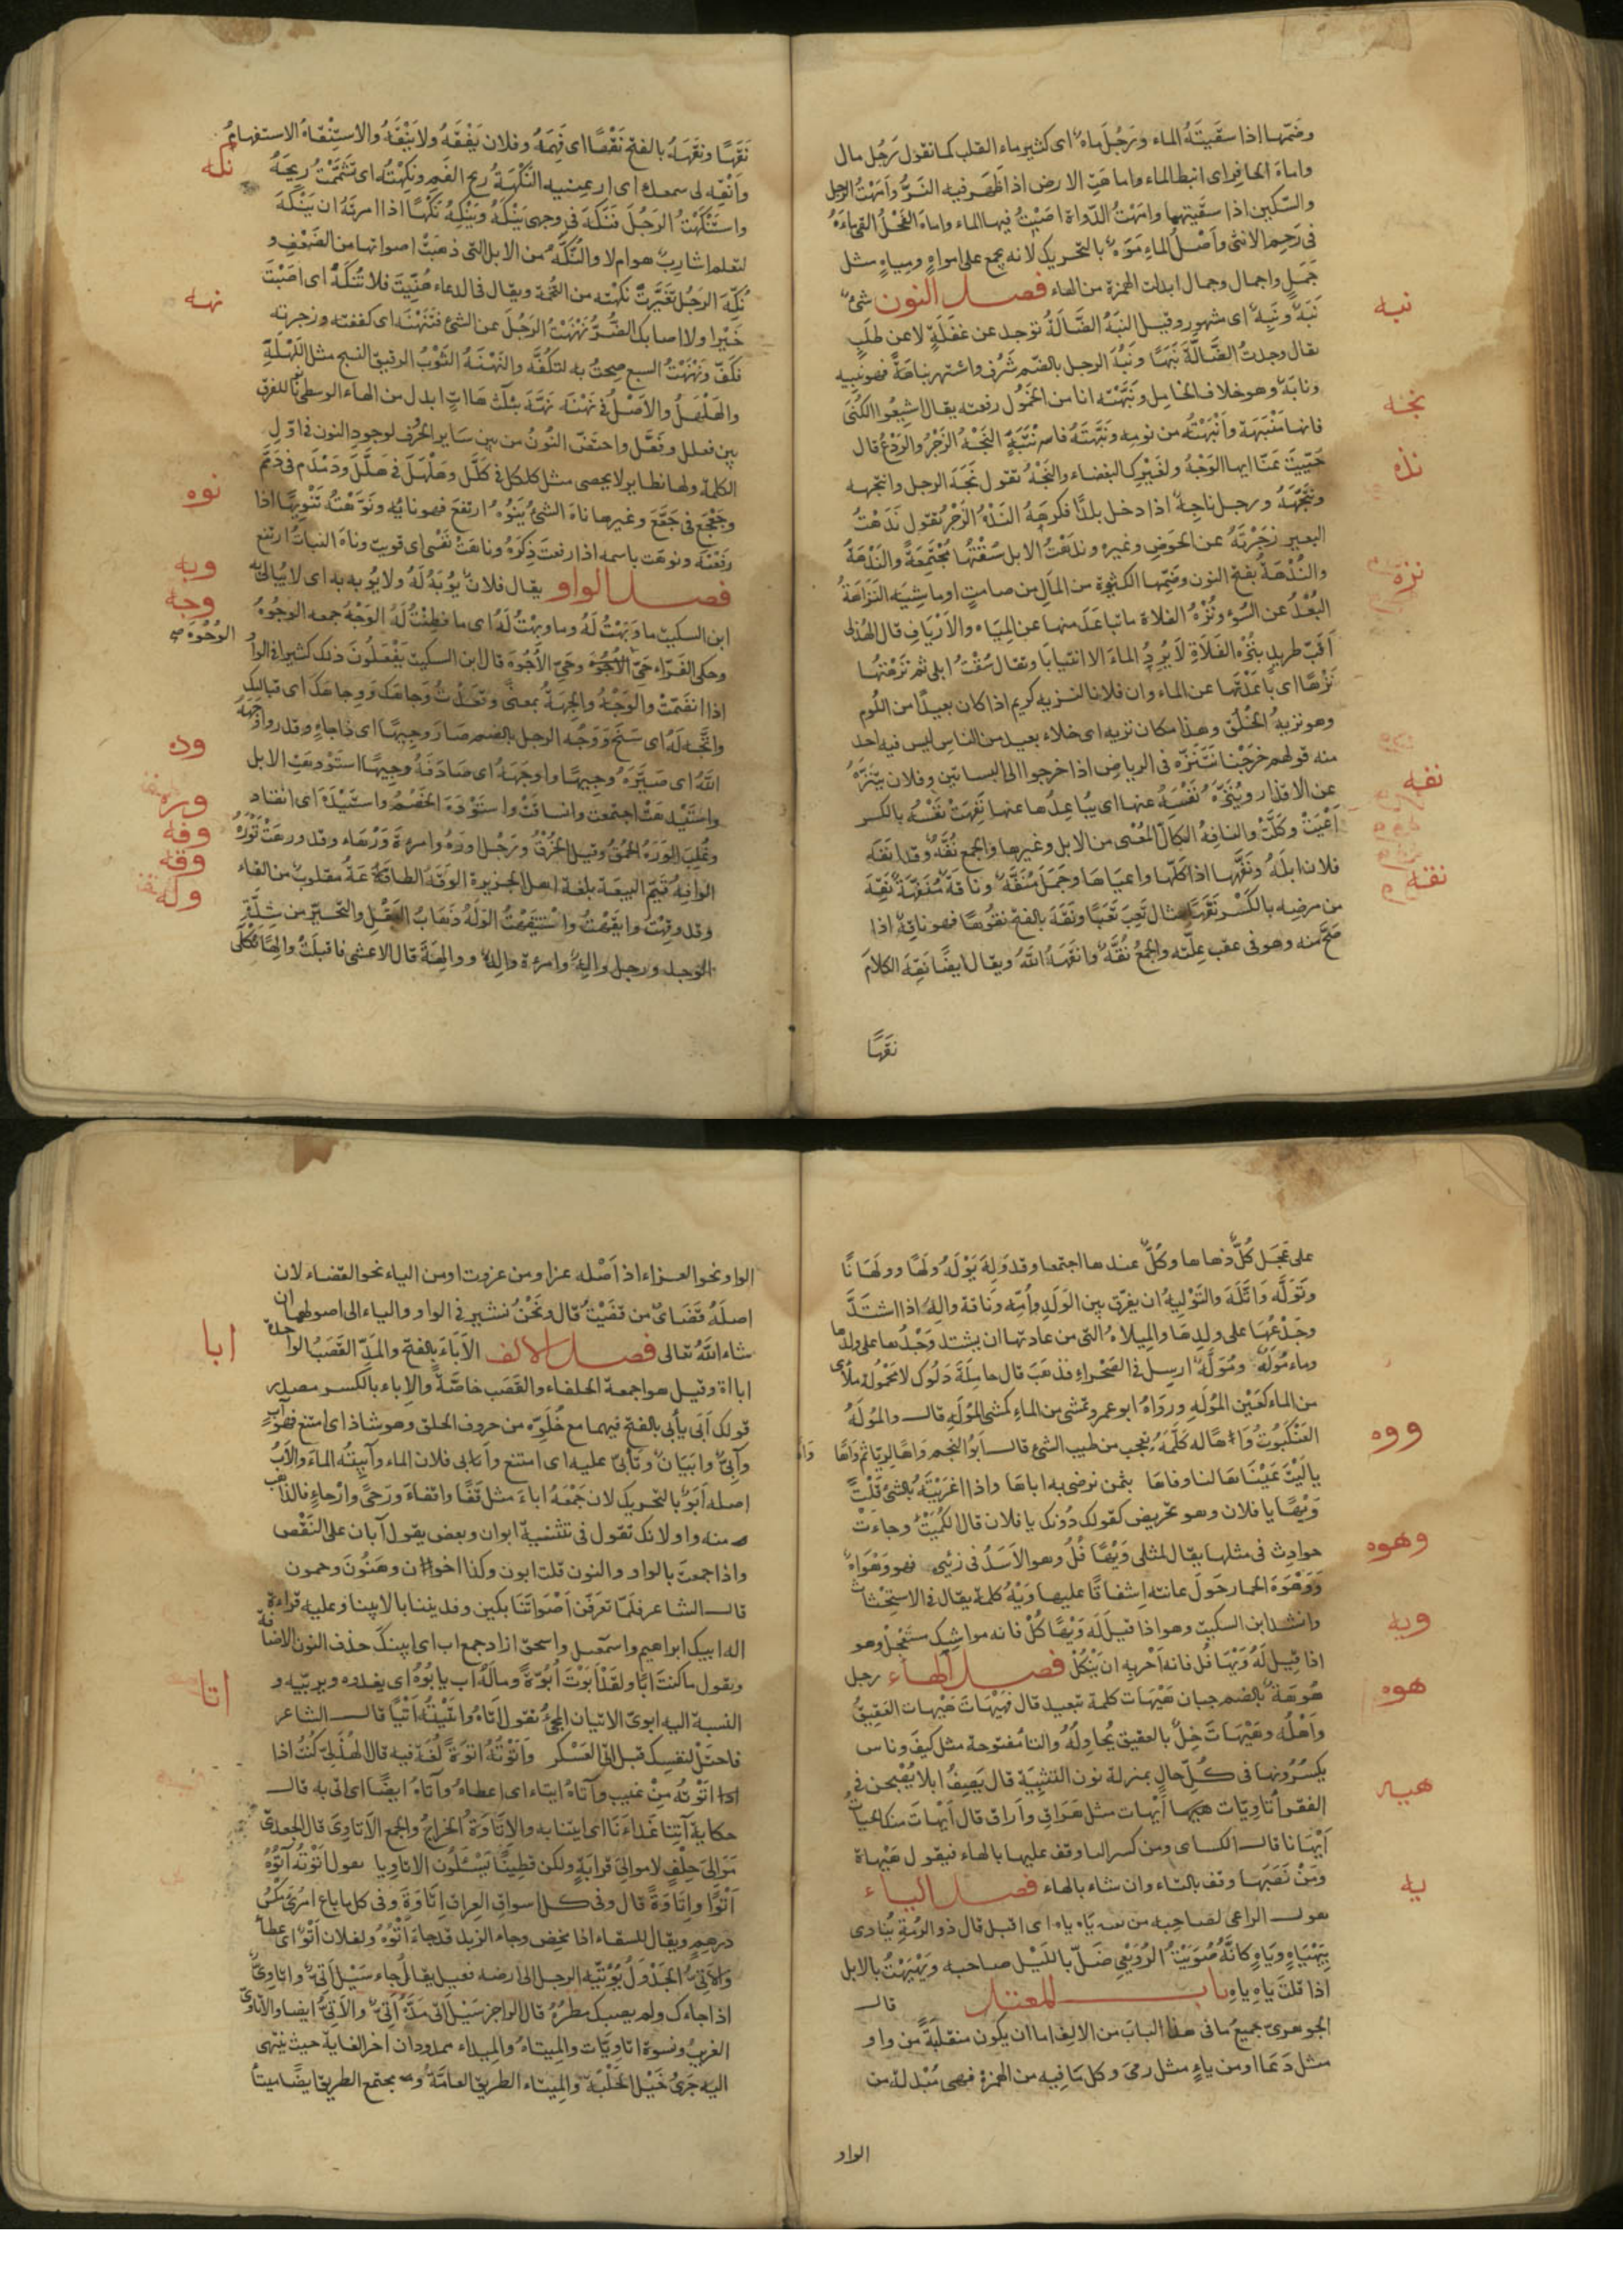 وضمّها اذا سقيته الماء ورجل ماه اى كثير ماء القلب كما تقول رجل مال
واماه الحافر اى انبط الماء واماهت الارض اذا ظهر فيه النزّ وامهت الرجل
والسّكين اذا سقيتهما وامهت الدّواة اصببت فيها الماء واماه الفحل القى ماءه
فى رحم الانثى واصل الماء موه بالتحريك لانه يجمع على امواه ومياه مثل
جمل واجمال وجمال ابدلت الهمزة من الهاء فصل النون شئ
نبه
نبه ونبه اى مشهور وقيل النبه الضّالّة توجد عن غفلة لا عن طلب
يقال وجدت الضّالّة نبها ونبه الرجل بالضم شرف واشتهر نباهة فهو نبيه
ونابه وهو خلاف الخامل ونبّهته انا من الخمول رفعته يقال اشيعوا الكنى
نجه
فانها منبهة وانبهته من نومه ونبّهته فانتبه النجه الزجر والردع قال
نده
حيّيت عنّا ايها الوجه ولغيرك البغضاء والنجه تقول نجه الرجل وانتجهه
وتنجّهه ورجل ناجه اذا دخل بلدا فكرهه النده الزجر تقول ندهت
البعير زجرته عن الحوض وغيره وندهت الابل سقتها مجتمعة والندهة
نزه
والندهة بفتح النون وضمّها الكثرة من المال من صامت او ماشية النزاهة
البعد عن السوء ونزه الفلاة ما تباعد منها عن المياه والارياف قال الهذلى
اقبّ طريد بنزه الفلاة لا يرد الماء الا انتيابا ويقال سقت ابلى ثم نزهتها
نزها اى باعدتها عن الماء وان فلانا لنزيه كريم اذا كان بعيدا من اللوم
وهو نزيه الخلق وهذا مكان نزيه اى خلاء بعيد من الناس ليس فيه احد
منه قولهم خرجنا نتنزّه فى الرياض اذا خرجوا الى البساتين وفلان يتنزّه
نفه
عن الاقذار وينزّه نفسه عنها اى يباعدها عنها نفهت نفسه بالكسر
اعيت وكلّت والنافه الكالّ المعيى من الابل وغيرها والجمع نفّه وقد انفه
نقه
فلان ابله ونفّهها اذا كلّها واعياها وجمل منفّه وناقة منفّهة نقه
من مرضه بالكسر نقها مثال تعب تعبا ونقه بالفتح نقوها فهو ناقه اذا
صحّ منه وهو فى عقب علّته والجمع نقّه وانقهه الله ويقال ايضا نقه الكلام
نقها
نقها ونقهه بالفتح نقها اى فهمه وفلان يفقه ولا ينقه والاستنقاه الاستفهام
نكه
وانقه لى سمعك اى ارعينيه النكهة ريح الفم ونكهته اى تشمّمت ريحه
واستنكهت الرجل فنكه فى وجهى ينكه وينكه نكها اذا امرته ان ينكه
لتعلم اشارب هو ام لا والنكّه من الابل التى ذهبت اصواتها من الضعف و
نكه الرجل تغيّرت نكهته من التخمة ويقال فى الدعاء هنّيت فلا تنكه اى اصبت
نهه
خيرا ولا اصابك الضّرّ نهنهت الرجل عن الشئ فتنهنه اى كففته وزجرته
فكفّ ونهنهت السبع صحت به لتكفّه والنهنه الثوب الرقيق النسج مثل اللهله
والهلهل والاصل فى نهنه نهّه بثلاث هاات ابدل من الهاء الوسطى نونا للفرق
بين فعلل وفعّل واختصّ النون من بين ساير الحروف لوجود النون فى اوّل
الكلمة ولها نظاير لا يحصى مثل كلكل فى كلّل وهلهل فى هلّل ودمدم فى دمّم
نوه
وجعجع فى جعّع وغيرها ناه الشئ ينوه ارتفع فهو نائه ونوّهته تنويها اذا
رفعته ونوهت باسمه اذا رفعت ذكره وناهت نفسى اى قويت وناه النبات ارتفع
وبه
فصل الواو يقال فلان لا يوبه له ولا يوبه به اى لا يبالى به
وجه
ابن السكيت ما وبهت له وما وبهت له اى ما فطنت له الوجه جمعه الوجوه
وحكى الفرّاء حىّ الاجوه وحىّ الاجوه قال ابن السكيت يفعلون ذلك كثيرا فى الواو
اذا انضمّت والوجه والجهة بمعنى وقعدت وجاهك ووجاهك اى قبالتك
واتّجه له اى سنح ووجه الرجل بالضم صار وجيها اى ذا جاه وقدر واوجهه
وده
الله اى صيّره وجيها واوجهه اى صادفه وجيها استودهت الابل
وره
واستيدهت اجتمعت وانساقت واستوده الخصم واستيده اى انقاد
وفه
وغلب الوره الحمق وقيل الخرق ورجل اوره وامرءة ورهاء وقد ورهت توره
وقه
الوافه قيّم البيعة بلغة اهل الجزيرة الوقه الطاعة مقلوب من القاه
وله
وقد وقهت وايقهت واستيقهت الوله ذهاب العقل والتحيّر من شدّة
الوجد ورجل واله وامرءة واله ووالهة قال الاعشى فاقبلت والها ثكلى
على عجل كلّ دهاها وكلّ عندها اجتمعا وقد وله يوله ولها وولهانا
وتولّه واتّله والتوليه ان يفرّق بين الولد وامّه وناقة واله اذا اشتدّ
وجدها على ولدها والميلاه التى من عادتها ان يشتد وجدها على ولدها
وماء موله وموله ارسل فى الصحراء فذهب قال حاملة دلوك لا محمولة ملأى
من الماء كعين الموله ورواه ابو عمرو تمشى من الماء كمشى الموله قال والموله
ووه
العنكبوت واها له كلمة تعجب من طيب الشئ قال ابو النجم واها لريّا ثم واها
يا ليت عينيها لنا وفاها بثمن نرضى به اباها واذا اغريته بالشئ قلت
ويها يا فلان وهو تحريض كقولك دونك يا فلان قال الكميت وجاءت
وهوه
حوادث فى مثلها يقال لمثلى ويها فل وهو الاسد فى زئيره فهو وهواه
ووهوه الحمار حول عانته اشفاقا عليها ويه كلمة يقال فى الاستحثاث
ويه
وانشد ابن السكيت وهو اذا قيل له ويها كل فانه مواشك مستعجل وهو
اذا قيل له ويها فل فانه احر به ان ينكل فصل الهاء رجل
هوه
هوهة بالضم جبان هيهات كلمة تبعيد قال فهيهات هيهات العقيق
واهله وهيهات خلّ بالعقيق يحاوله والتا مفتوحة مثل كيف وناس
هيه
يكسرونها فى كلّ حال بمنزلة نون التثنية قال يصف ابلا يصبحن فى
الفقر اتاويّات هيهات ايهات مثل هراق واراق قال ايهات منك الحيات
ايهانا قال الكساى ومن كسر التا وقف عليها بالهاء فيقول هيهاه
يه
ومن نصبها وقف بالتاء وان شاء بالهاء فصل الياء
يقول الراعى لصاحبه من بعد ياه ياه اى اقبل قال ذو الرمة ينادى
بيهياه وياه كانه صويت الرويعى ضلّ بالليل صاحبه ويهيهت بالابل
اذا قلت ياه ياه باب المعتل قال
الجوهرى جميع ما فى هذا الباب من الالف اما ان يكون منقلبة من واو
مثل دعا او من ياء مثل رمى وكل ما فيه من الهمزة فهى مبدلة من
الواو
الواو نحو العزاء اذ اصله عزاو من عزوت او من الياء نحو القضاء لان
اصله قضاى من قضيت قال ونحن نشير فى الواو والياء الى اصولهما ان
ابا
شاء الله تعالى فصل الالف الاباء بالفتح والمدّ القصب الواحدة
اباءة وقيل هو اجمة الحلفاء والقصب خاصّة والاباء بالكسر مصدر
قولك ابى يأبى بالفتح فيهما مع خلوّه من حروف الحلق وهو شاذ اى امتنع فهو آب
وآبى وابيان وتأبّى عليه اى امتنع وآبى فلان الماء وآبيته الماء والاب
اصله ابو بالتحريك لان جمعه اباء مثل قفا واقفاء ورحى وارحاء فالذاهب
منه واو لانك تقول فى تثنية ابوان وبعض يقول آبان على النقص
واذا جمعت بالواو والنون قلت ابون وكذا اخون وهنون وحمون
قال الشاعر فلمّا تعرّفن اصواتنا بكين وفديننا بالابينا وعليه قراءة
اله ابيك ابراهيم واسمعيل واسحق اراد جمع اب اى ابينك حذف النون للاضافة
ويقول ما كنت ابا ولقد ابوت ابوّة وما له اب يابوه اى يغدوه ويربّيه و
اتا
النسبة اليه ابوىّ الاتيان المجئ تقول اتاه واتيته اتيا قال الشاعر
فاحتل لنفسك قبل اتى العسكر واتوته اتوة لغة فيه قال الهذلىّ كنت اذا
اتوته من غيب وآتاه ايتاء اى اعطاه وآتاه ايضا اى اتى به قال
حكاية آتنا غداءنا اى ايتنا به والاتاوة الخراج والجمع الاتاوى قال الجعدى
موالى حلف لا موالى قرابة ولكن قطينا يسئلون الاتاويا يقول اتوته آتوه
اتوا واتاوة قال وفى كل اسواق العراق اتاوة وفى كل ما باع امرئ مكس
درهم ويقال للسقاء اذا مخض وجاء الزبد قد جاء اتوه ولفلان اتو اى عطاء
والاتىّ الجدول يؤتّيه الرجل الى ارضه فعيل يقال جاء سيل اتىّ واتاوىّ
اذا جاءك ولم يصبك مطره قال الراجز سيل اتىّ مدّه اتىّ والاتىّ ايضا والاتاوىّ
الغريب ونسوة اتاويّات والميتاء والميداء ممدودان اخر الغاية حيث ينتهى
اليه جرى خيل الحلبة والميتاء الطريق العامّة ومجتمع الطريق ايضا ميتاء